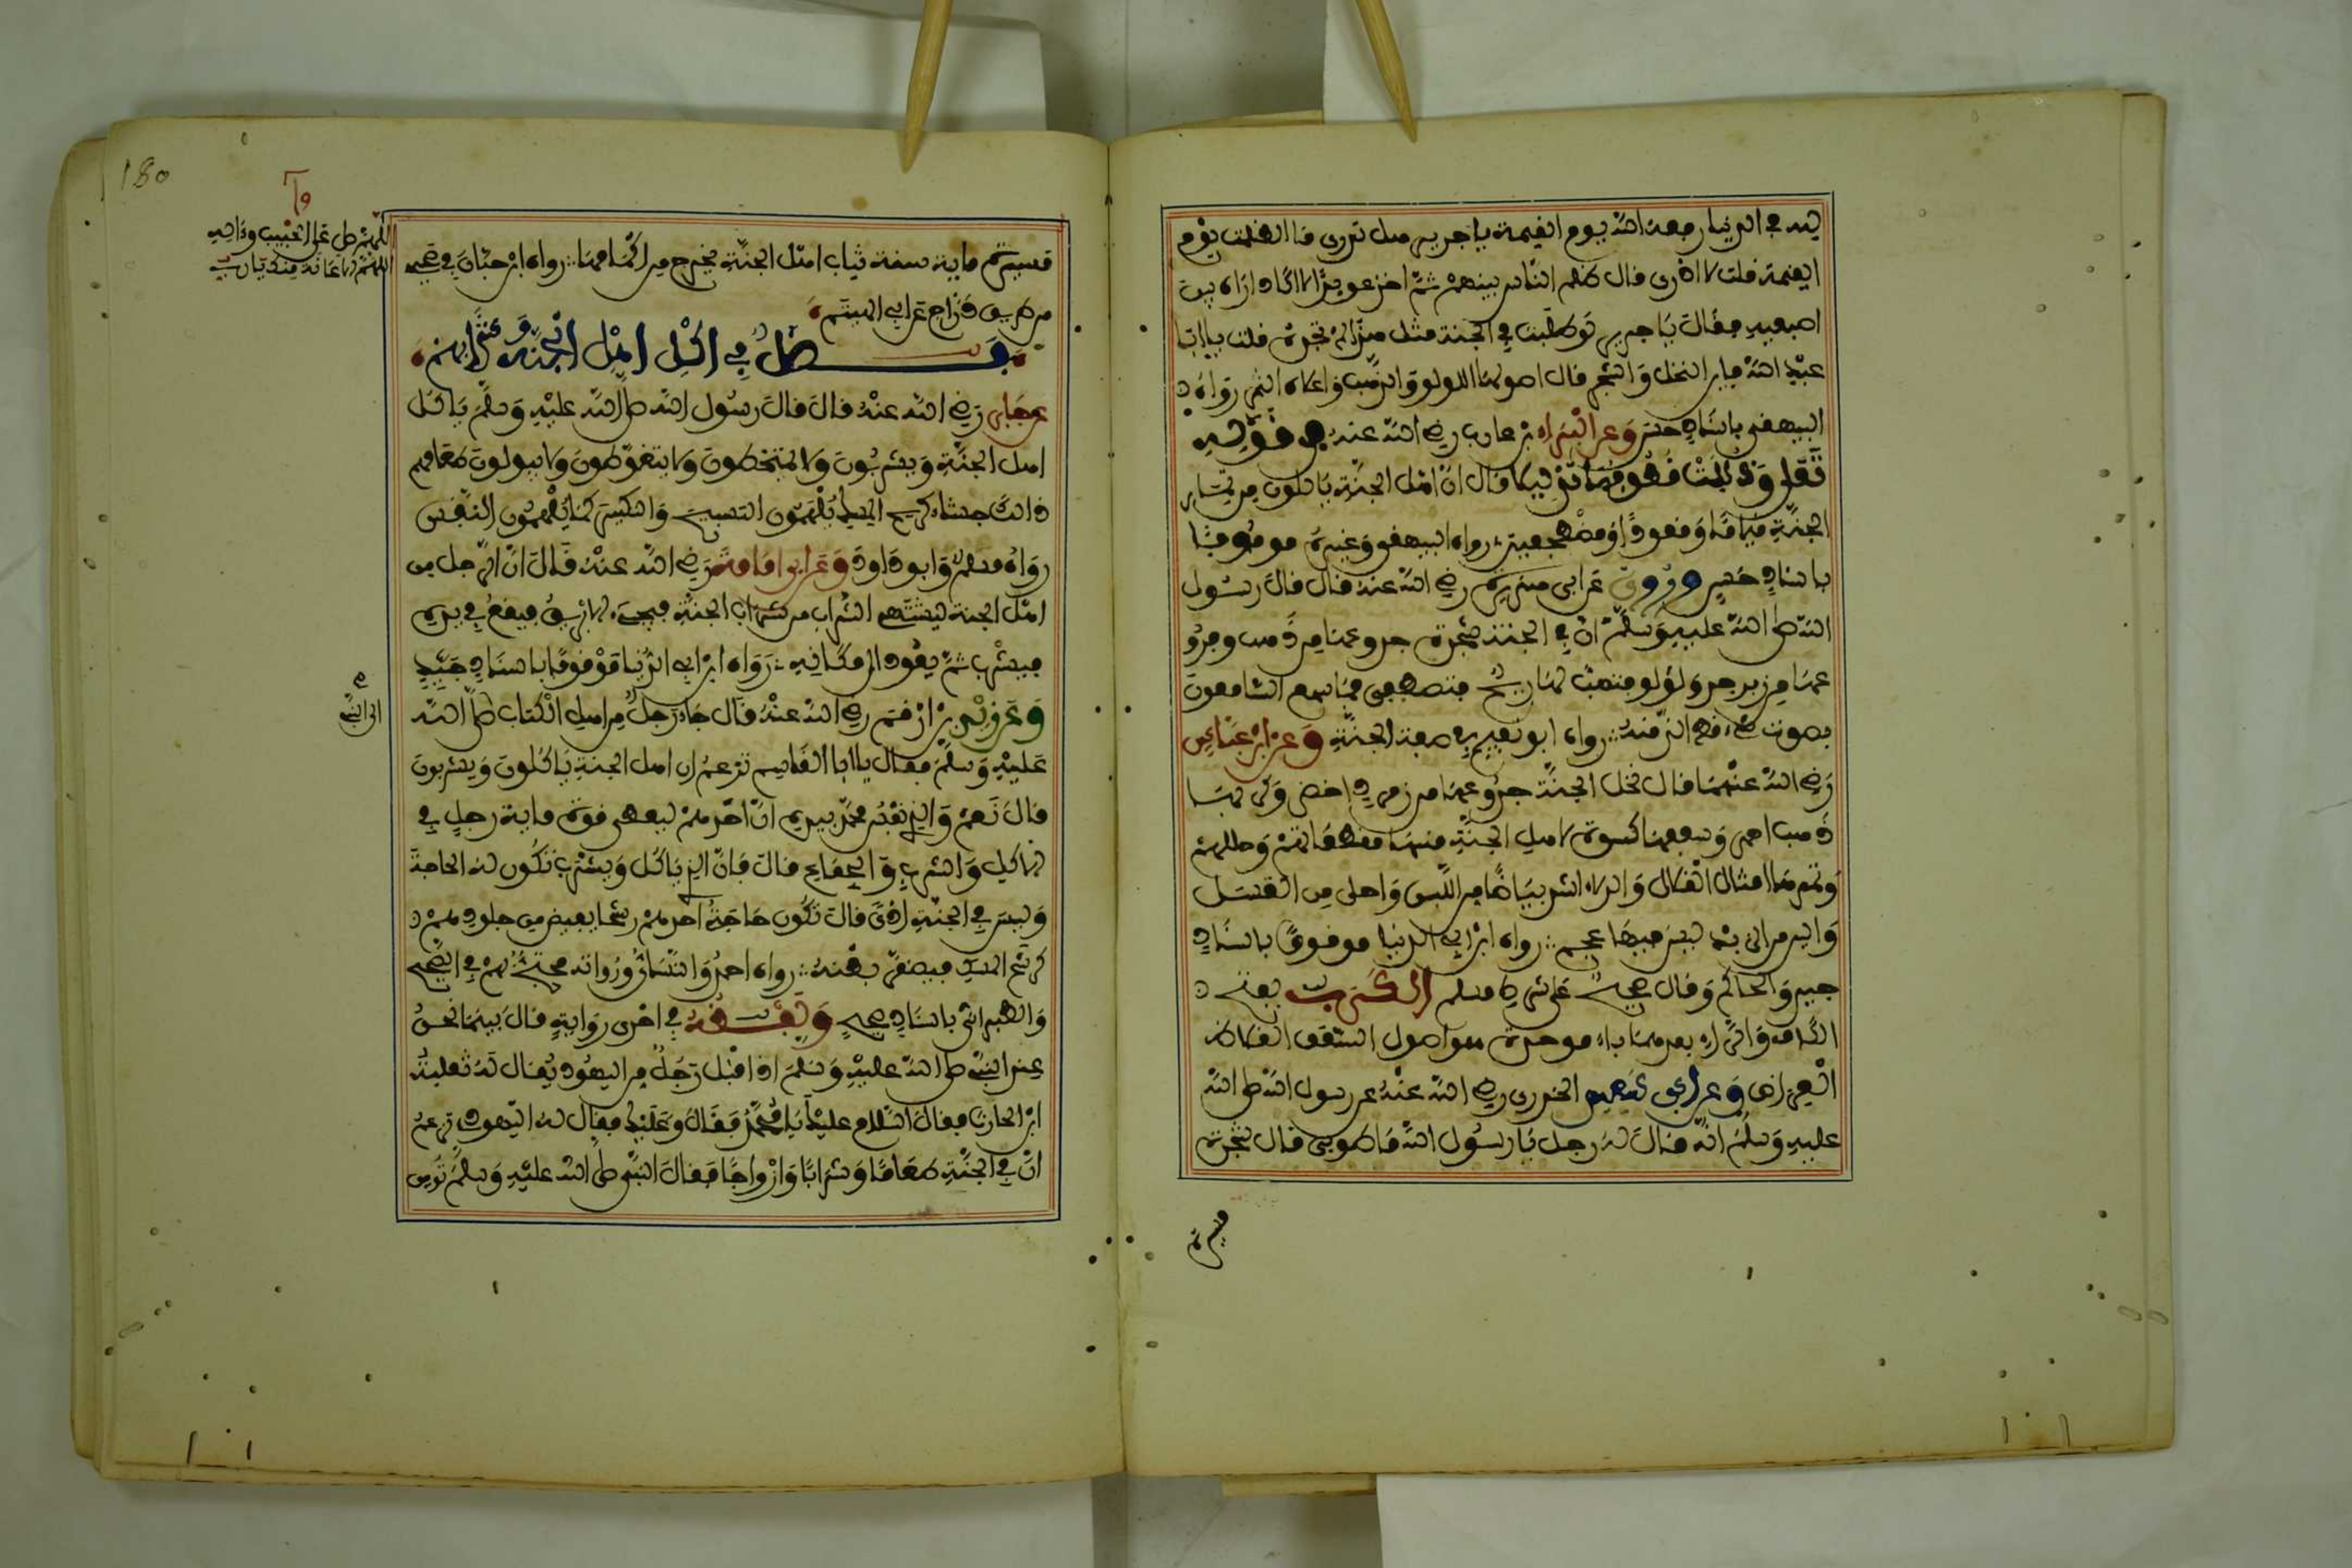 لله في الدنيا رفعه الله يوم القيمة يا جرير هل تدرى ما الظلمت يوم
القيمة قلت لا ادرى قال ظلم الناس بينهم ثم اخذ عويدا لا اكاد اراه بين
اصبعيه فقال يا جرير لو طلبت في الجنة مثل هذا لم تجده قلت يا ابا
عبد الله فاين النخل والشجر قال اصولها اللولو والذهب واعلاه الثمر رواه
البيهقى باسناد حسن وعن البراء بن عازب رضي الله عنه في قوله
تعلى وذللت قطوفها تذليلا قال ان اهل الجنة ياكلون من ثمار
الجنة قياما وقعودا ومضطجعين رواه البيهقى وغيره موقوفا
باسناد حسن وروى عن ابى هريرة رضي الله عنه قال قال رسول
الله صلى الله عليه وسلم ان في الجنة شجرة جذوعها من ذهب وفروعها
من زبرجد ولؤلؤ فتهب لها ريح فتصطفق فما سمع السامعون
بصوت شيء قط الذ منه رواه ابو نعيم في صفة الجنة وعن ابن عباس
رضي الله عنهما قال نخل الجنة جذوعها من زمرد اخضر وكربها
ذهب احمر وسعفها كسوة لاهل الجنة منها مقطعاتهم وحللهم
وثمرها امثال القلال والدلاء اشد بياضا من اللبن واحلى من العسل
والين من الزبد ليس فيها عجم رواه ابن ابي الدنيا موقوفا باسناد
جيد والحاكم وقال صحيح على شرط مسلم الكرب بفتح
الكاف والراء بعدهما باء موحدة هو اصول السعف الغلاظ
العراض وعن ابى سعيد الخدرى رضي الله عنه عن رسول الله صلى الله
عليه وسلم انه قال له رجل يا رسول الله ما طوبى قال شجرة
مسيرة
180
اللهم صل على الحبيب وءاله
اللهم الاعانة منك يا رب
مسيرة ماية سنة ثياب اهل الجنة تخرج من اكمامها رواه ابن حبان في صحيحه
من طريق دراج عن ابي الهيثم
فصل في اكل اهل الجنة وشرابهم
عن جابر رضي الله عنه قال قال رسول الله صلى الله عليه وسلم ياكل
اهل الجنة ويشربون ولا يمتخطون ولا يتغوطون ولا يبولون طعامهم
ذلك جشاء كريح المسك يلهمون التسبيح والتكبير كما يلهمون النفس
رواه مسلم وابو داود وعن ابى امامة رضي الله عنه قال ان الرجل من
اهل الجنة ليشتهي الشراب من شراب الجنة فيجيء الابريق فيقع في يده
فيشرب ثم يعود الى مكانه رواه ابن ابي الدنيا موقوفا باسناد جيد
وعن زيد بن ارقم رضي الله عنه قال جاء رجل من اهل الكتاب صلى الله
الى النبي
عليه وسلم فقال يا ابا القاسم تزعم ان اهل الجنة ياكلون ويشربون
قال نعم والذي نفس محمد بيده ان احدهم ليعطى قوة ماية رجل في
الاكل والشرب والجماع قال فان الذي ياكل ويشرب تكون له الحاجة
وليس في الجنة اذى قال تكون حاجة احدهم رشحا يفيض من جلودهم
كرشح المسك فيضمر بطنه رواه احمد والنسائي ورواته محتج بهم في الصحيح
والطبرانى باسناد صحيح ولفظه في اخرى رواية قال بينما نحن
عند النبي صلى الله عليه وسلم اذ اقبل رجل من اليهود يقال له ثعلبة
ابن الحارث فقال السلام عليك يا محمد فقال وعليك فقال له اليهودى تزعم
ان في الجنة طعاما وشرابا وازواجا فقال النبي صلى الله عليه وسلم تومن